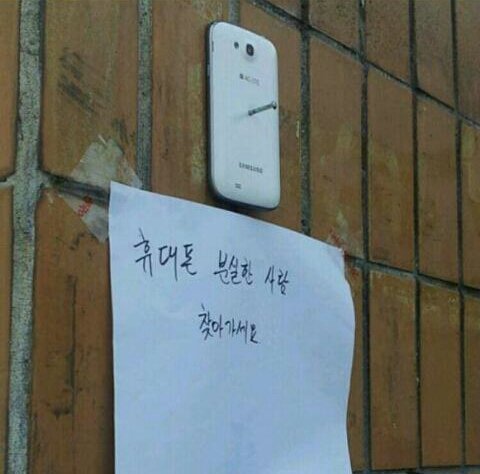 4G LTE
SAMSUNG
휴대폰 분실한 사람
찾아가세요